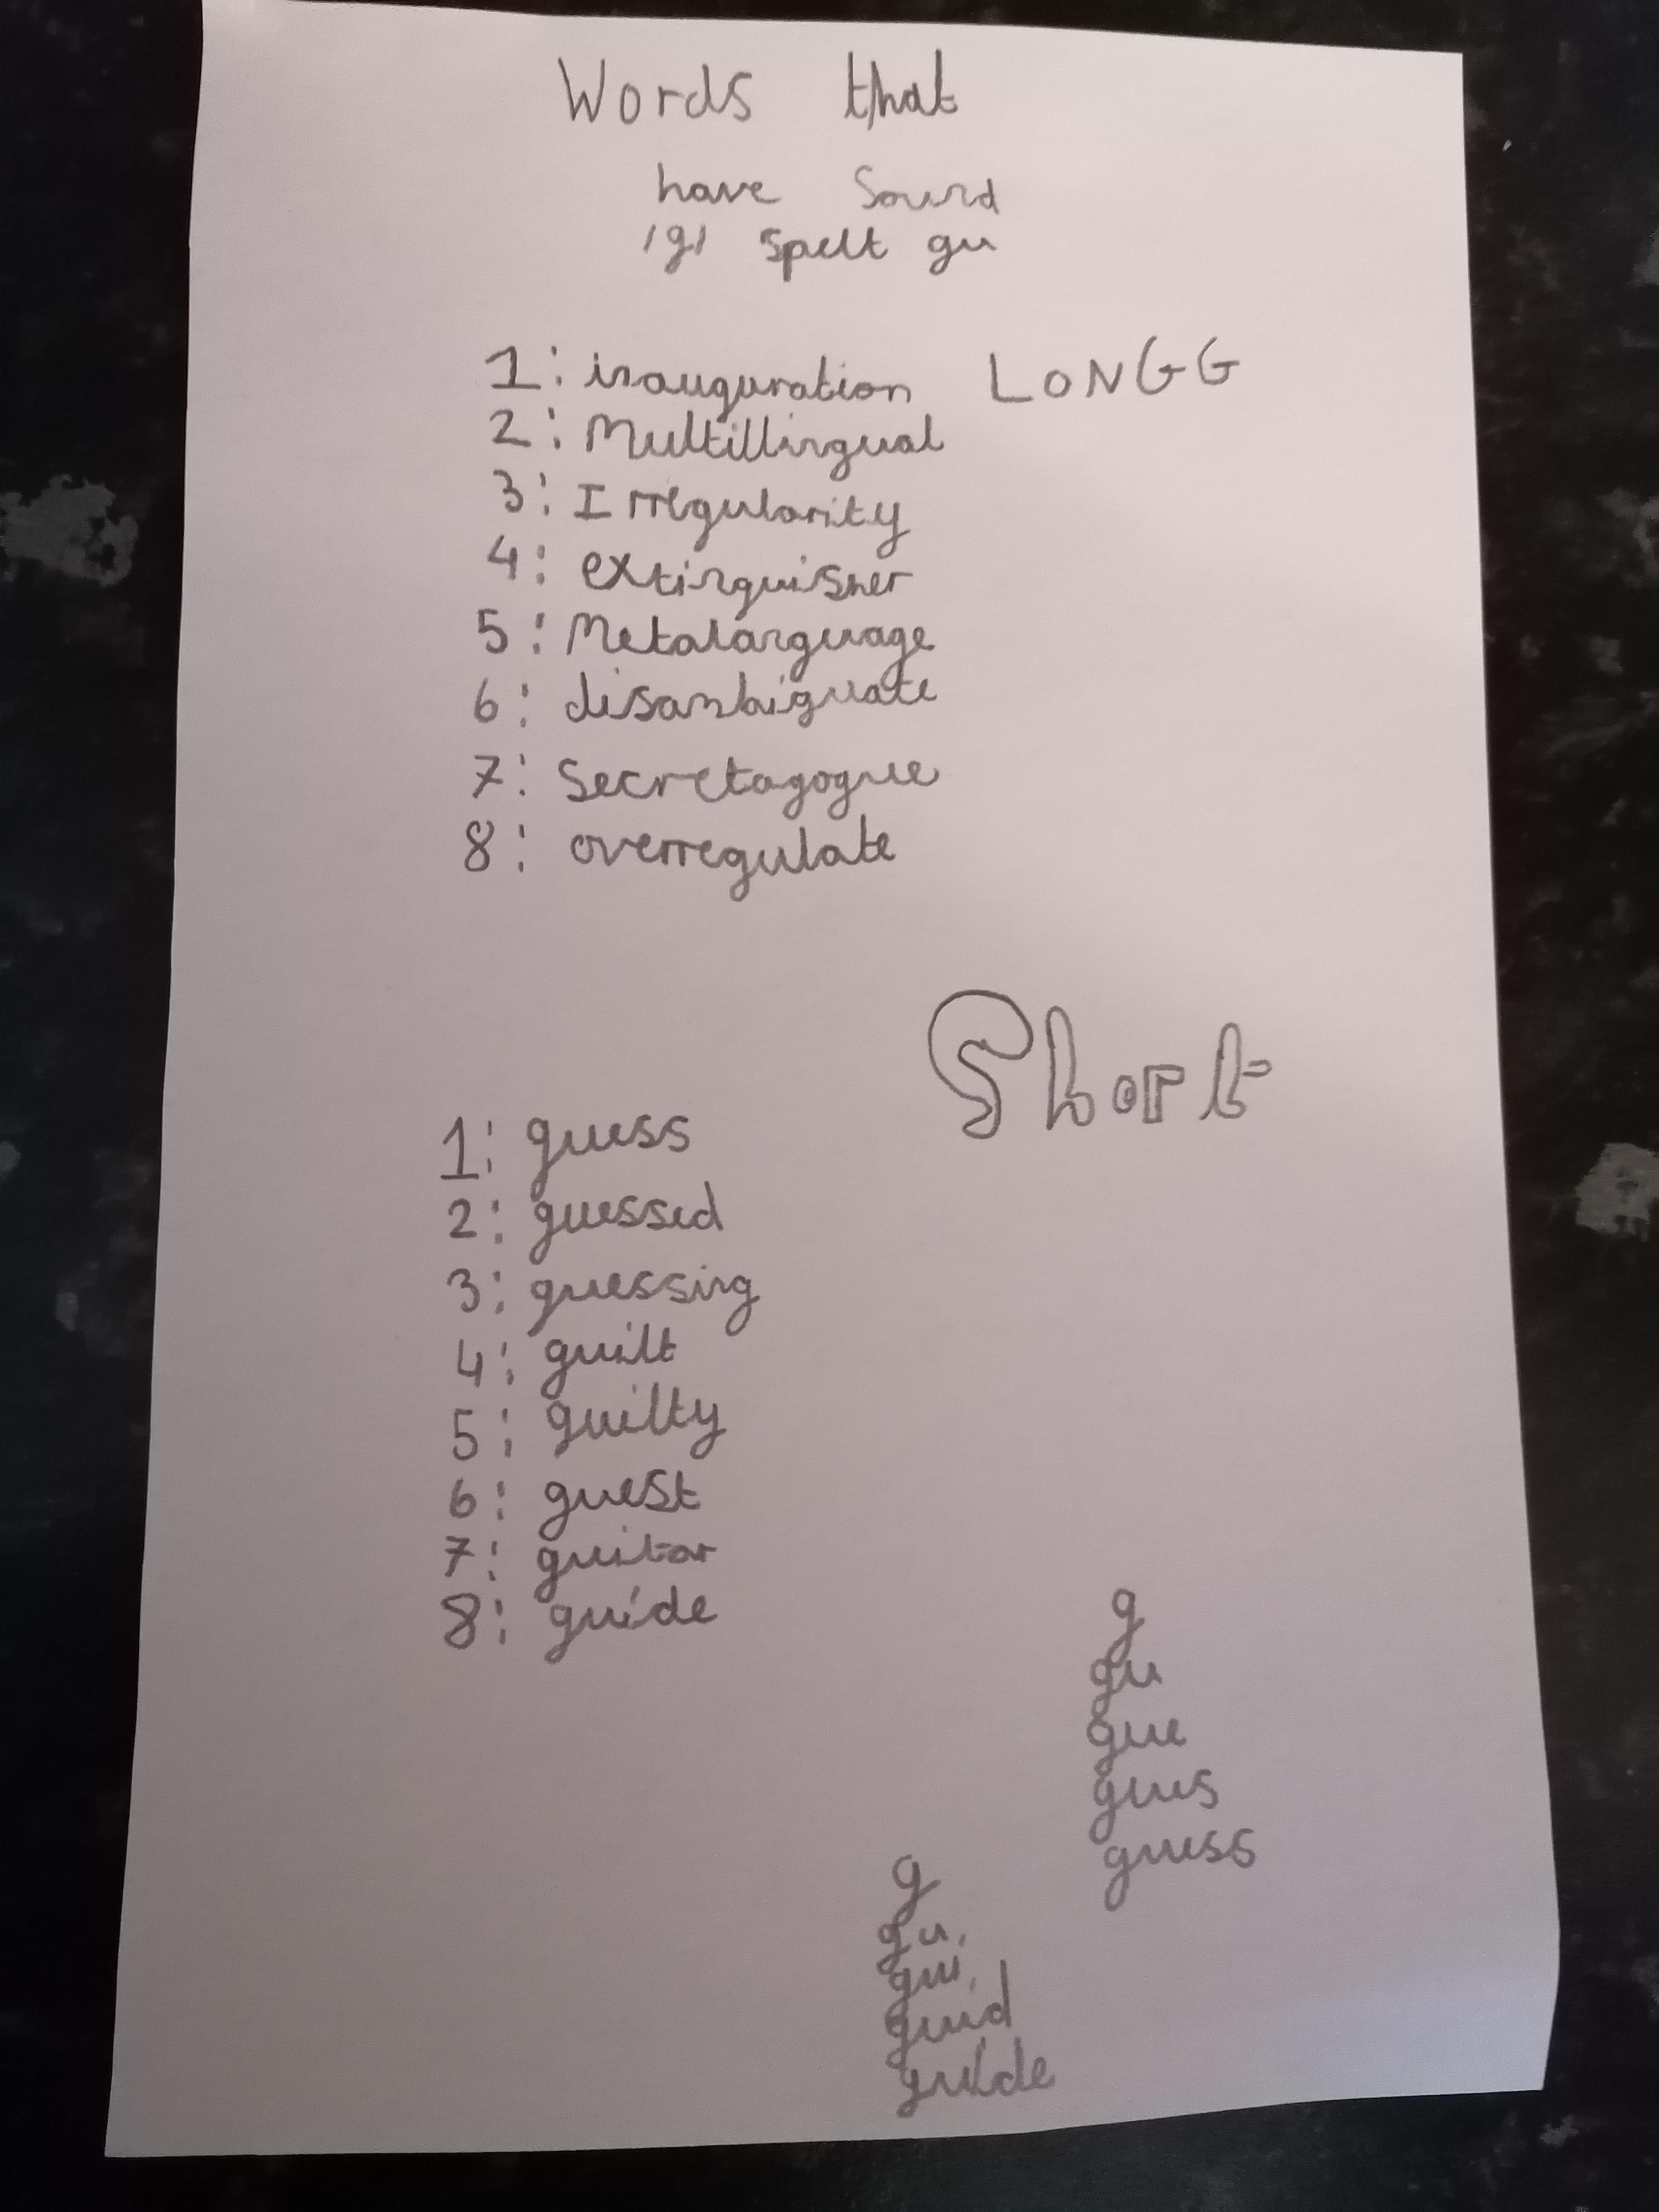 Words that
have Sound
/g/ spelt gu
1: inauguration LONGG
2: Multillingual
3: Irregularity
4: extinguisher
5: Metalanguage
6: disambiguate
7: Secretagogue
8: overregulate
Short
1: guess
2: guessed
3: guessing
4: guilt
5: guilty
6: guest
7: guitar
8: guide
g
gu
gue
gues
guess
g
gu
gui
guid
guide